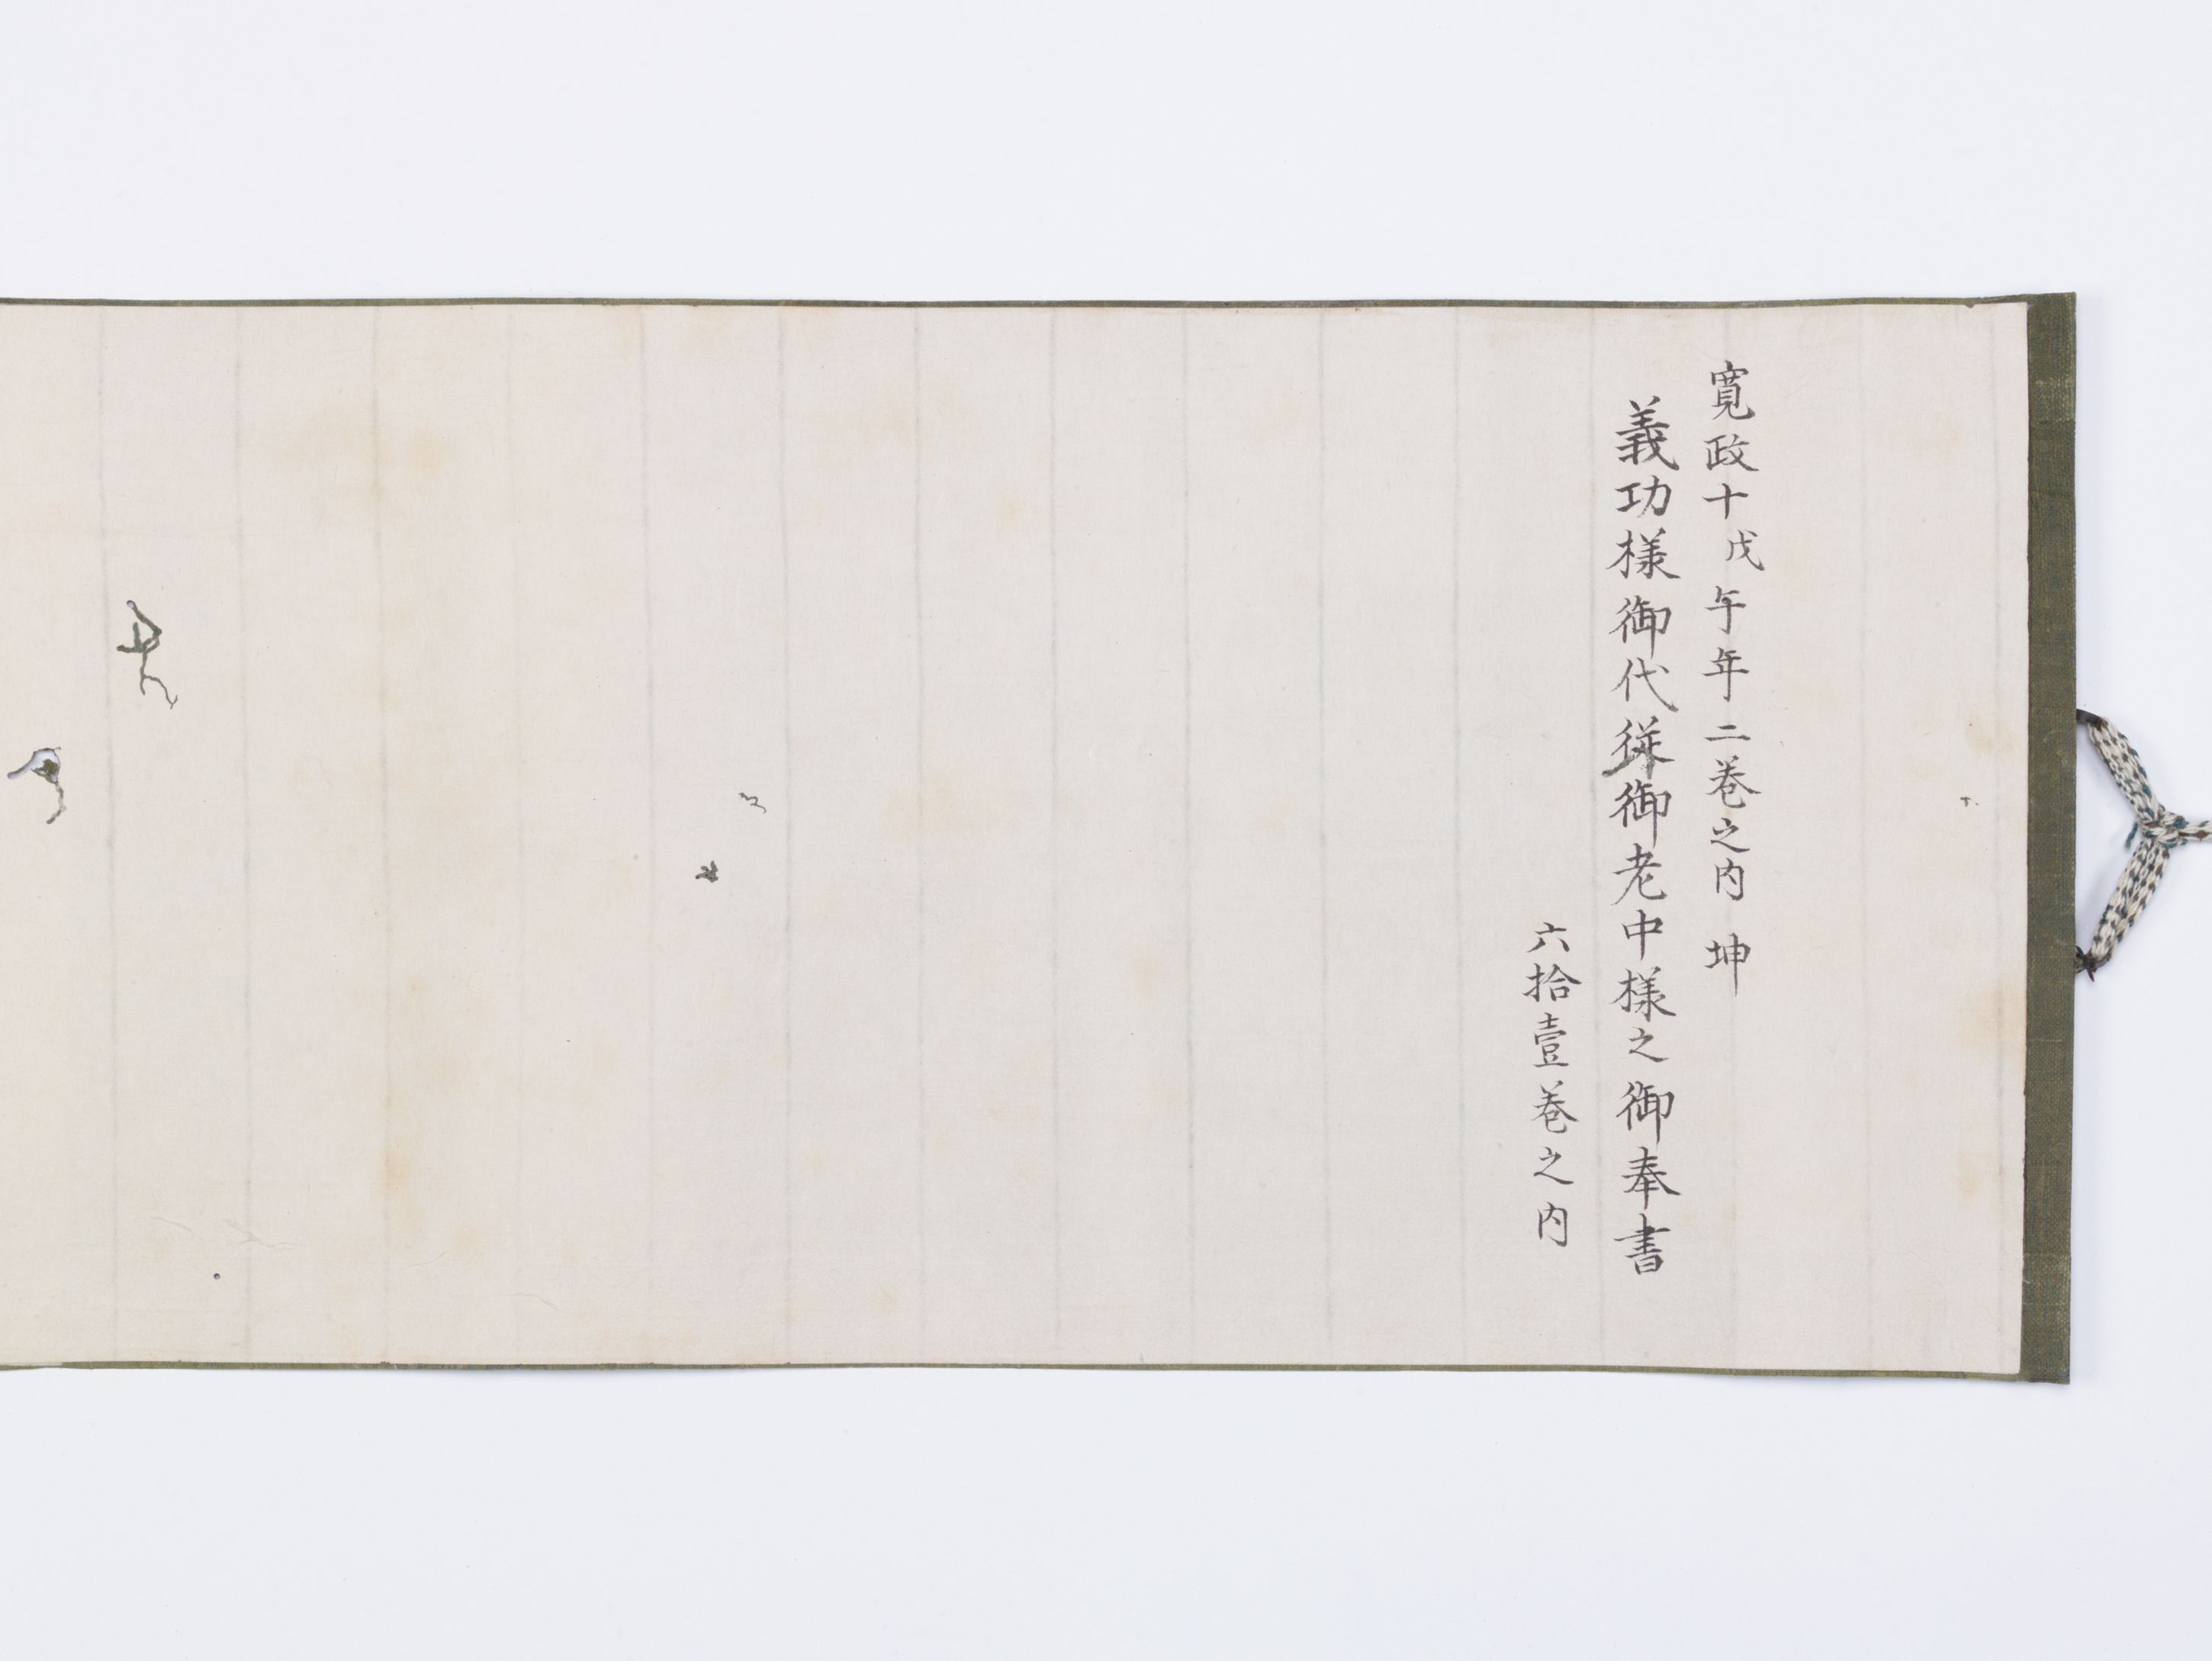 寛政十戊午年二巻之内 坤
義功様御代従御老中様之御奉書
六拾壹巻之内